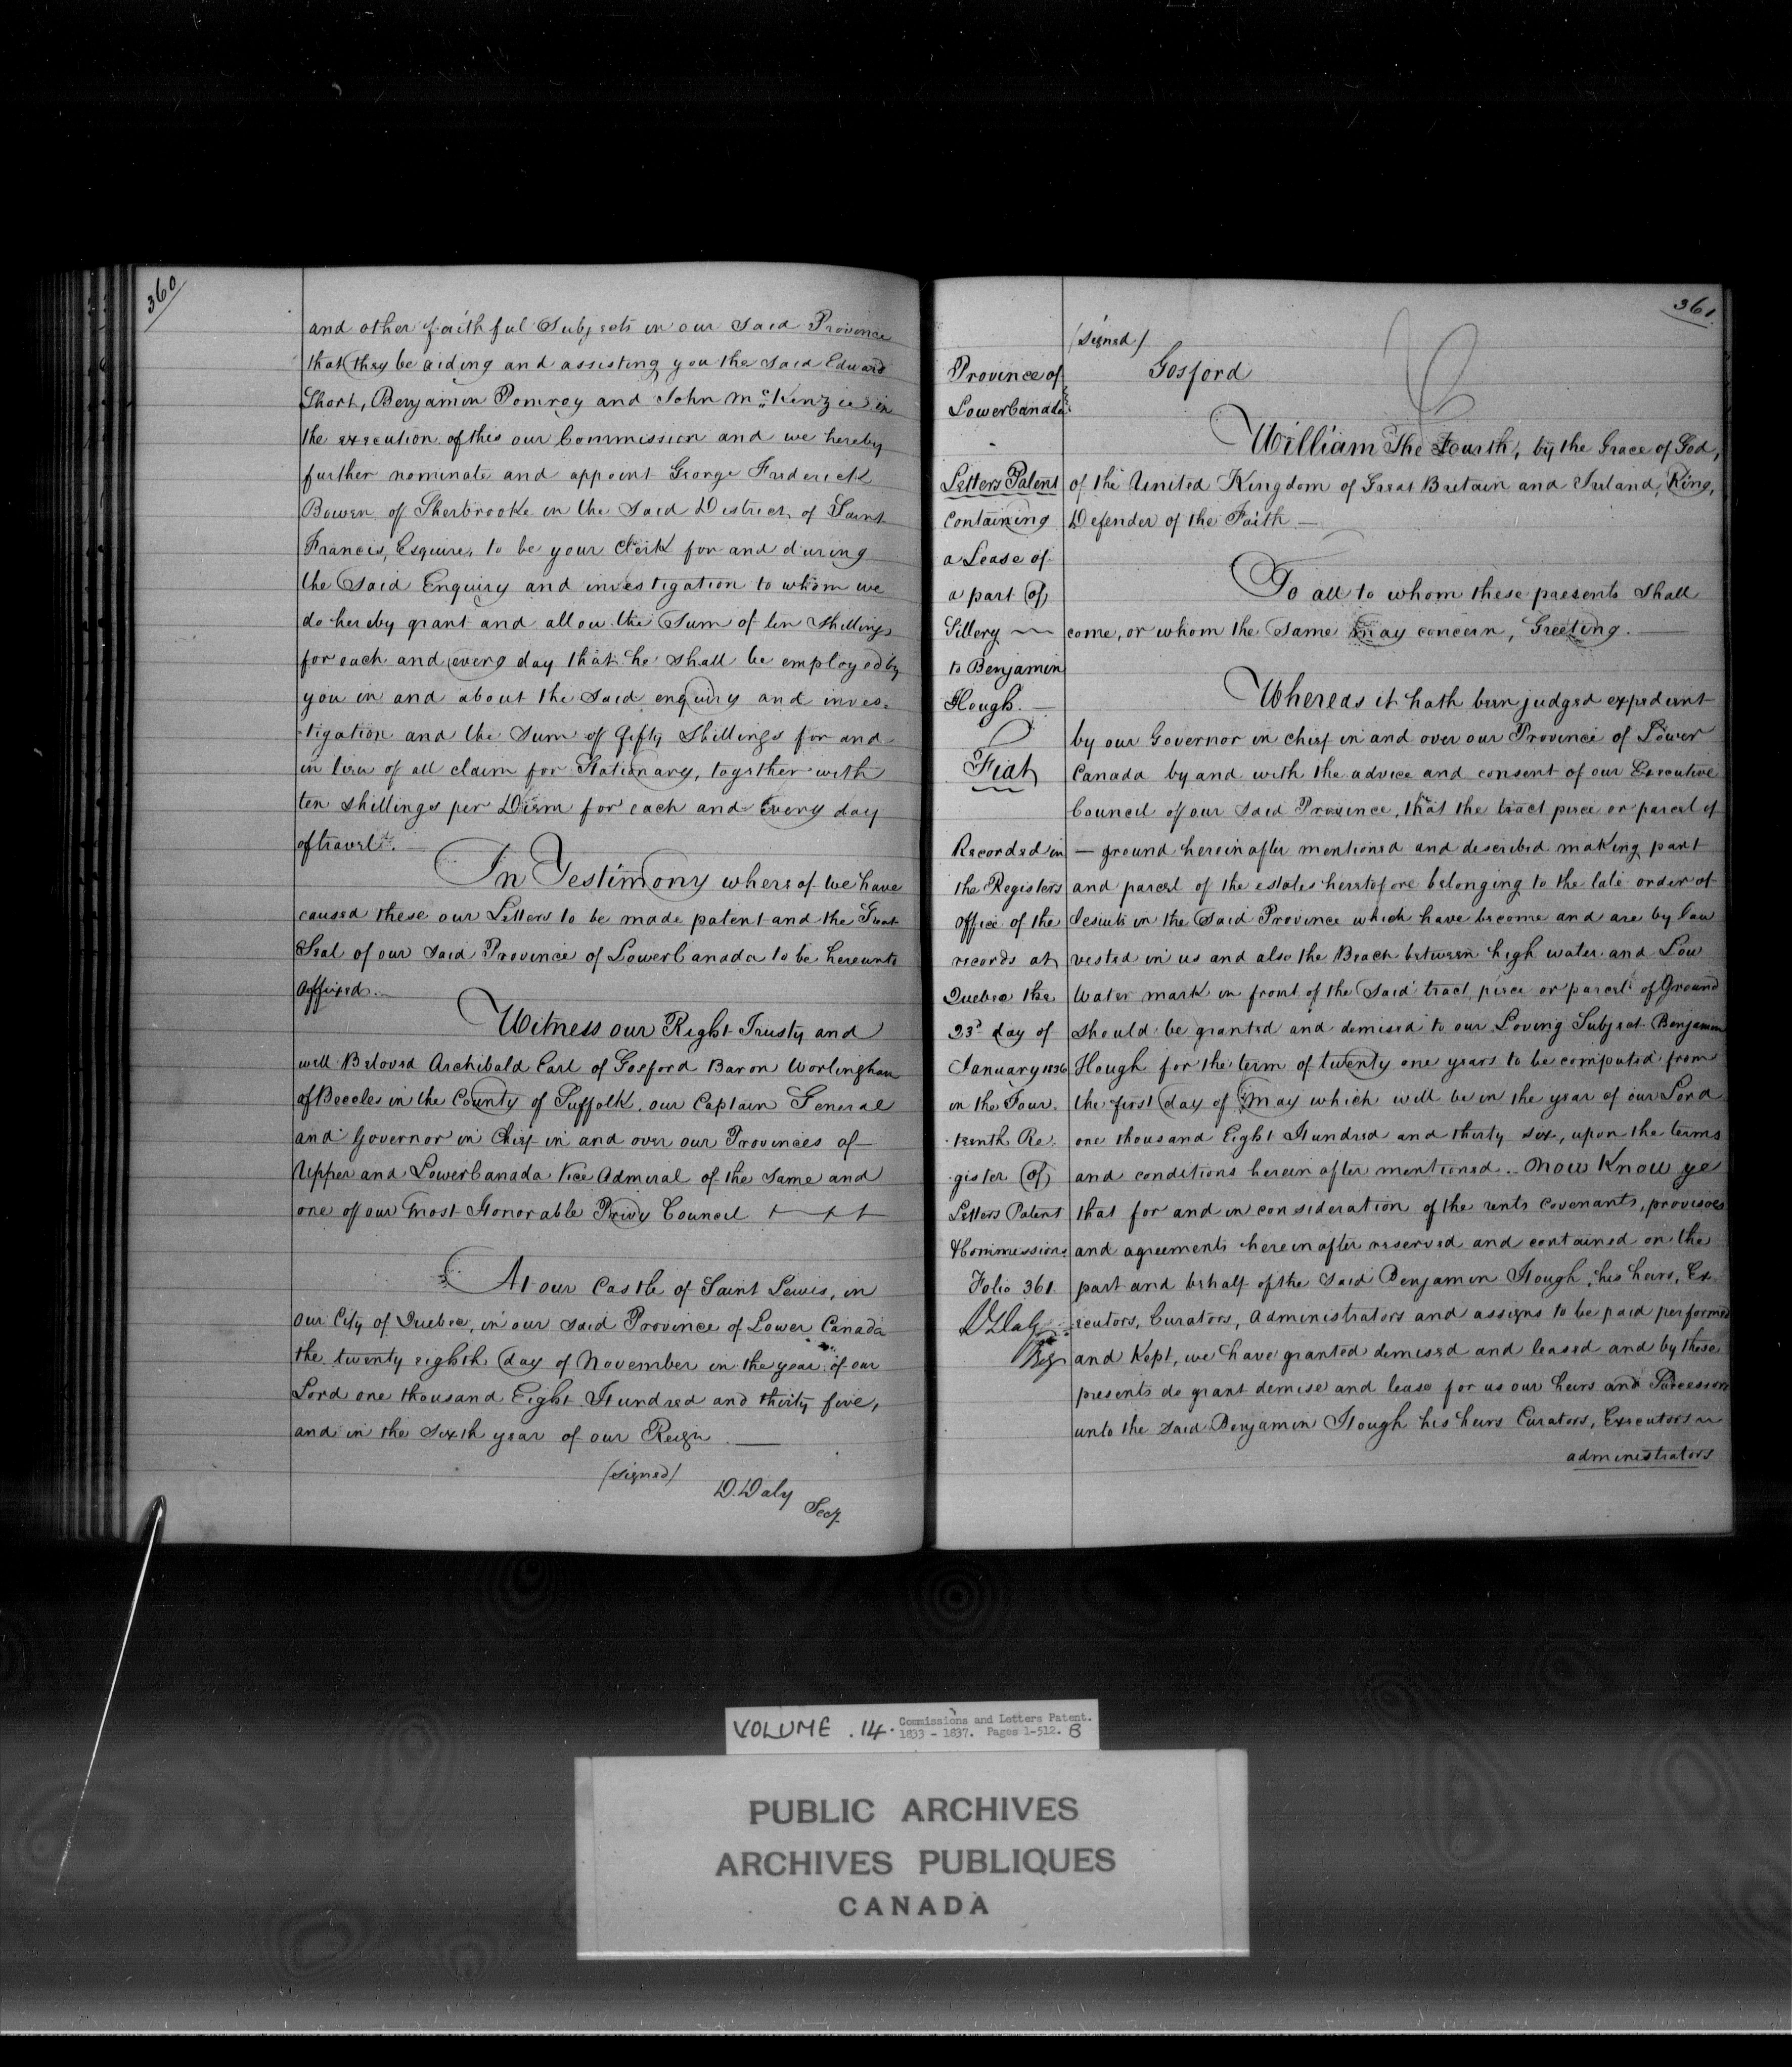 360
and other faithful Subjects in our Said Province
that they be aiding and assisting you the Said Edward
Short, Benjamin Pomroy and John McKenzie in
the execution of this our Commission and we hereby
further nominate and appoint George Frederick
Bowen of Sherbrooke in the Said District of Saint
Francis, Esquire, to be your Clerk for and during
the Said Enquiry and investigation to whom we
do hereby grant and allow the Sum of ten Shillings
for each and every day that he shall be employed by
you in and about the Said enquiry and inves-
tigation and the Sum of fifty Shillings for and
in lieu of all claim for Stationary, together with
ten shillings per Diem for each and Every day
of travel. —
In Testimony whereof we have
caused these our Letters to be made patent and the Great
Seal of our Said Province of Lower Canada to be hereunto
affixed. —
Witness our Right Trusty and
well Beloved Archibald Earl of Gosford Baron Worlingham
of Beccles in the County of Suffolk, our Captain General
and Governor in Chief in and over our Provinces of
Upper and Lower Canada Vice Admiral of the Same and
one of our most Honorable Privy Council
At our Castle of Saint Lewis, in
our City of Quebec, in our said Province of Lower Canada
the twenty eighth day of November in the year of our
Lord one thousand Eight Hundred and thirty five,
and in the Sixth year of our Reign —
(signed)
D. Daly
Secy.
361.
(signed)
Gosford
Province of
Lower Canada
Letters Patent
Containing
a Lease of
a part of
Sillery
to Benjamin
Hough. —
Fiat
Recorded in
the Registers
office of the
records at
Quebec the
23d day of
January 1836
in the Four-
teenth Re-
gister of
Letters Patent
& Commissions
Folio 361.
D Daly
Reg
William The Fourth, by the Grace of God,
of the United Kingdom of Great Britain and Ireland, King,
Defender of the Faith —
To all to whom these presents Shall
come, or whom the Same may concern, Greeting. —
Whereas it hath been judged expedient
by our Governor in chief in and over our Province of Lower
Canada by and with the advice and consent of our Executive
Council of our Said Province, that the tract piece or parcel of
— ground hereinafter mentioned and described making part
and parcel of the estates heretofore belonging to the late order of
Jesuits in the Said Province which have become and are by law
vested in us and also the Beach between high water and Low
Water mark in front of the Said tract, piece or parcel of Ground
should be granted and demised to our Loving Subject Benjamin
Hough for the term of twenty one years to be computed from
the first day of May which will be in the year of our Lord
one thousand Eight Hundred and thirty six, upon the terms
and conditions herein after mentioned. Now Know ye
that for and in consideration of the rents covenants, provisoes
and agreements hereinafter reserved and contained on the
part and behalf of the Said Benjamin Hough, his heirs, Ex-
ecutors, Curators, Administrators and assigns to be paid performed
and Kept, we have granted demised and leased and by these
presents do grant demise and lease for us our heirs and Successors
unto the said Benjamin Hough his heirs Curators, Executors
administrators
VOLUME . 14. Commissions and Letters Patent.
1833 - 1837. Pages 1-512. B
PUBLIC ARCHIVES
ARCHIVES PUBLIQUES
CANADA